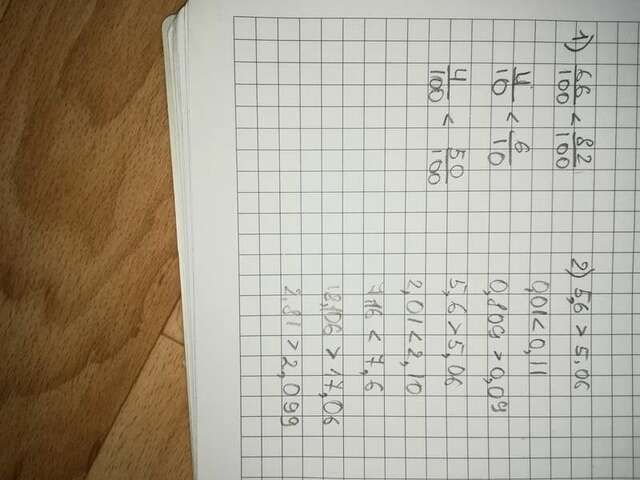 1) 66/100 < 82/100
4/10 < 6/10
4/100 < 50/100
2) 5,6 > 5,06
0,01 < 0,11
0,809 > 0,09
5,6 > 5,06
2,01 < 2,10
7,16 < 7,6
18,106 > 17,06
2,81 > 2,099